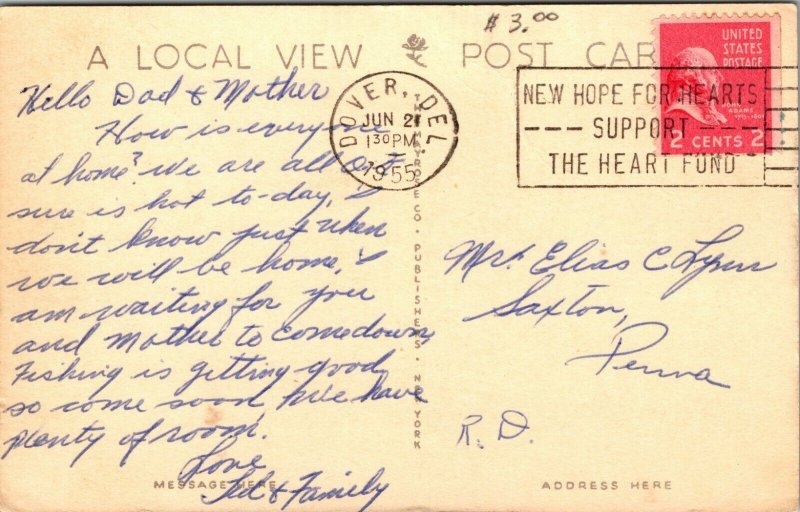 # 3.00
A LOCAL VIEW POST CAR
Hello Dad & Mother
How is everyone
at home? We are all O.K.
sure is hot to-day, I
don't know just when
we will be home, I
am waiting for you
and Mother to come down
Fishing is getting good
so come soon, We have
plenty of room.
Love
Ted & Family
MESSAGE HERE
DOVER, DEL.
JUN 2
1 30 PM
1955
NEW HOPE FOR HEARTS
--- SUPPORT ---
THE HEART FUND
UNITED
STATES
POSTAGE
JOHN
ADAMS
2 CENTS 2
THE MAYROSE CO. · PUBLISHERS · NEW YORK
Mr. Elias C Lynn
Saxton,
Penna
R. D.
ADDRESS HERE